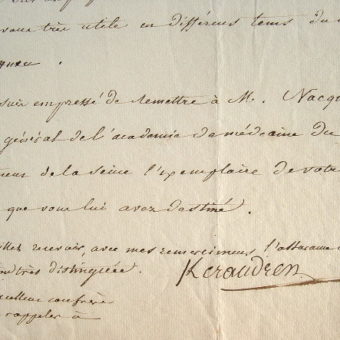 vous très utile en différens tems du
suis empressé de remettre à M. Nacqu
général de l'académie de médecine du
eur de la seine l'exemplaire de votre
que vous lui avez destiné.
recevoir, avec mes remercimens, l'assurance
très distinguée. Keraudren
confrère
rappeler à